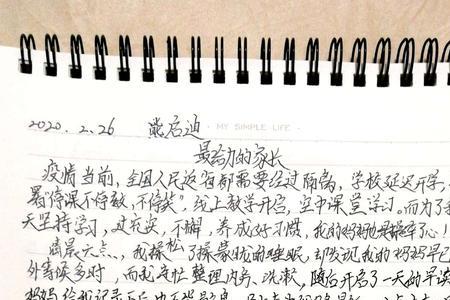 2020.2.26 熊启迪
MY SIMPLE LIFE
最给力的家长
疫情当前,全国人民返省都需要经过隔离,学校延迟开学,
"停课不停教,不停学",线上教学开启,空中课堂学习。而为了
天坚持学习,过充实,不懈,养成好习惯,我的妈妈
清晨六点,我揉松了揉朦胧的睡眼,却发现我的妈妈早已
外等候多时,而我连忙整理内务、洗漱,随后开启了一天的早读